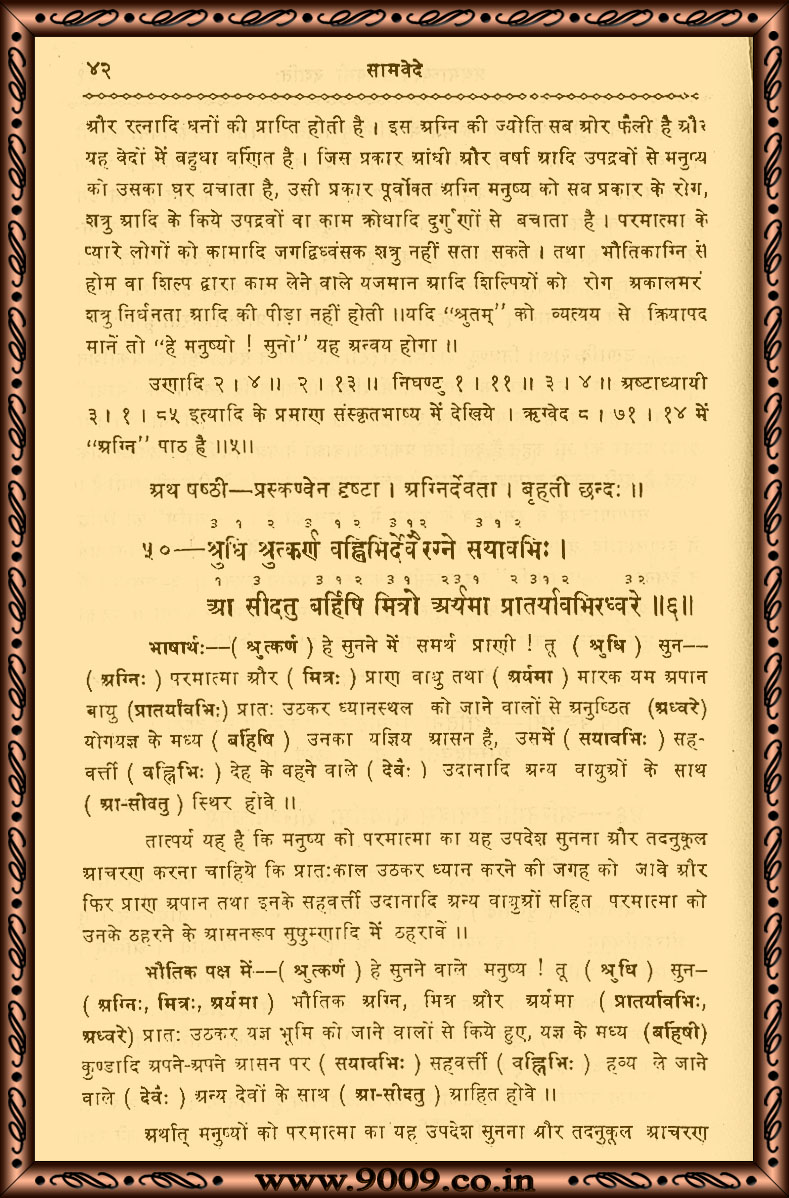 ४२ सामवेदे
और रत्नादि धनों की प्राप्ति होती है । इस अग्नि की ज्योति सब ओर फैली है और
यह वेदों में बहुधा वर्णित है । जिस प्रकार आंधी और वर्षा आदि उपद्रवों से मनुष्य
को उसका घर बचाता है, उसी प्रकार पूर्वोक्त अग्नि मनुष्य को सब प्रकार के रोग,
शत्रु आदि के किये उपद्रवों वा काम क्रोधादि दुर्गुणों से बचाता है । परमात्मा के
प्यारे लोगों को कामादि जगद्विध्वंसक शत्रु नहीं सता सकते । तथा भौतिकाग्नि से
होम वा शिल्प द्वारा काम लेने वाले यजमान आदि शिल्पियों को रोग
शत्रु निर्धनता आदि की पीड़ा नहीं होती ॥यदि “श्रुतम्” को व्यत्यय से क्रियापद
मानें तो “हे मनुष्यो ! सुनो” यह अन्वय होगा ॥
उणादि २ । ४ ॥ २ । १३ ॥ निघण्टु १ । ११ ॥ ३ । ४ ॥ अष्टाध्यायी
३ । १ । ८५ इत्यादि के प्रमाण संस्कृतभाष्य में देखिये । ऋग्वेद ८ । ७१ । १४ में
“अग्नि” पाठ है ॥५॥
अथ षष्ठी—प्रस्कण्वेन दृष्टा । अग्निर्देवता । बृहती छन्दः ॥
३ १ २ ३ १ २ ३१२ ३१ २
५०—श्रुधि श्रुत्कर्ण वह्निभिर्देवैरग्ने सयावभिः ।
१ ३ ३१ २ ३१ २३१ २ ३१२ ३२
आ सीदतु बर्हिषि मित्रो अर्यमा प्रातर्यावभिरध्वरे ॥६॥
भाषार्थः--( श्रुत्कर्ण ) हे सुनने में समर्थ प्राणी ! तू ( श्रुधि ) सुन--
( अग्निः ) परमात्मा और ( मित्रः ) प्राण वायु तथा ( अर्यमा ) मारक यम अपान
वायु (प्रातर्यावभिः) प्रातः उठकर ध्यानस्थल को जाने वालों से अनुष्ठित (अध्वरे)
योगयज्ञ के मध्य ( बर्हिषि ) उनका यज्ञिय आसन है, उसमें ( सयावभिः ) सह-
वर्त्ती ( वह्निभिः ) देह के वहने वाले ( देवैः ) उदानादि अन्य वायुओं के साथ
( आ-सीदतु ) स्थिर होवे ॥
तात्पर्य यह है कि मनुष्य को परमात्मा का यह उपदेश सुनना और तदनुकूल
आचरण करना चाहिये कि प्रातःकाल उठकर ध्यान करने की जगह को जावे और
फिर प्राण अपान तथा इनके सहवर्त्ती उदानादि अन्य वायुओं सहित परमात्मा को
उनके ठहरने के आसनरूप सुषुम्णादि में ठहरावें ॥
भौतिक पक्ष में--( श्रुत्कर्ण ) हे सुनने वाले मनुष्य ! तू ( श्रुधि ) सुन–
( अग्निः, मित्रः, अर्यमा ) भौतिक अग्नि, मित्र और अर्यमा ( प्रातर्यावभिः,
अध्वरे) प्रातः उठकर यज्ञ भूमि को जाने वालों से किये हुए, यज्ञ के मध्य (बर्हिषी)
कुण्डादि अपने-अपने आसन पर ( सयावभिः ) सहवर्त्ती ( वह्निभिः ) हव्य ले जाने
वाले ( देवैः ) अन्य देवों के साथ ( आ-सीदतु ) आहित होवे ॥
अर्थात् मनुष्यों को परमात्मा का यह उपदेश सुनना और तदनुकूल आचरण
www.9009.co.in